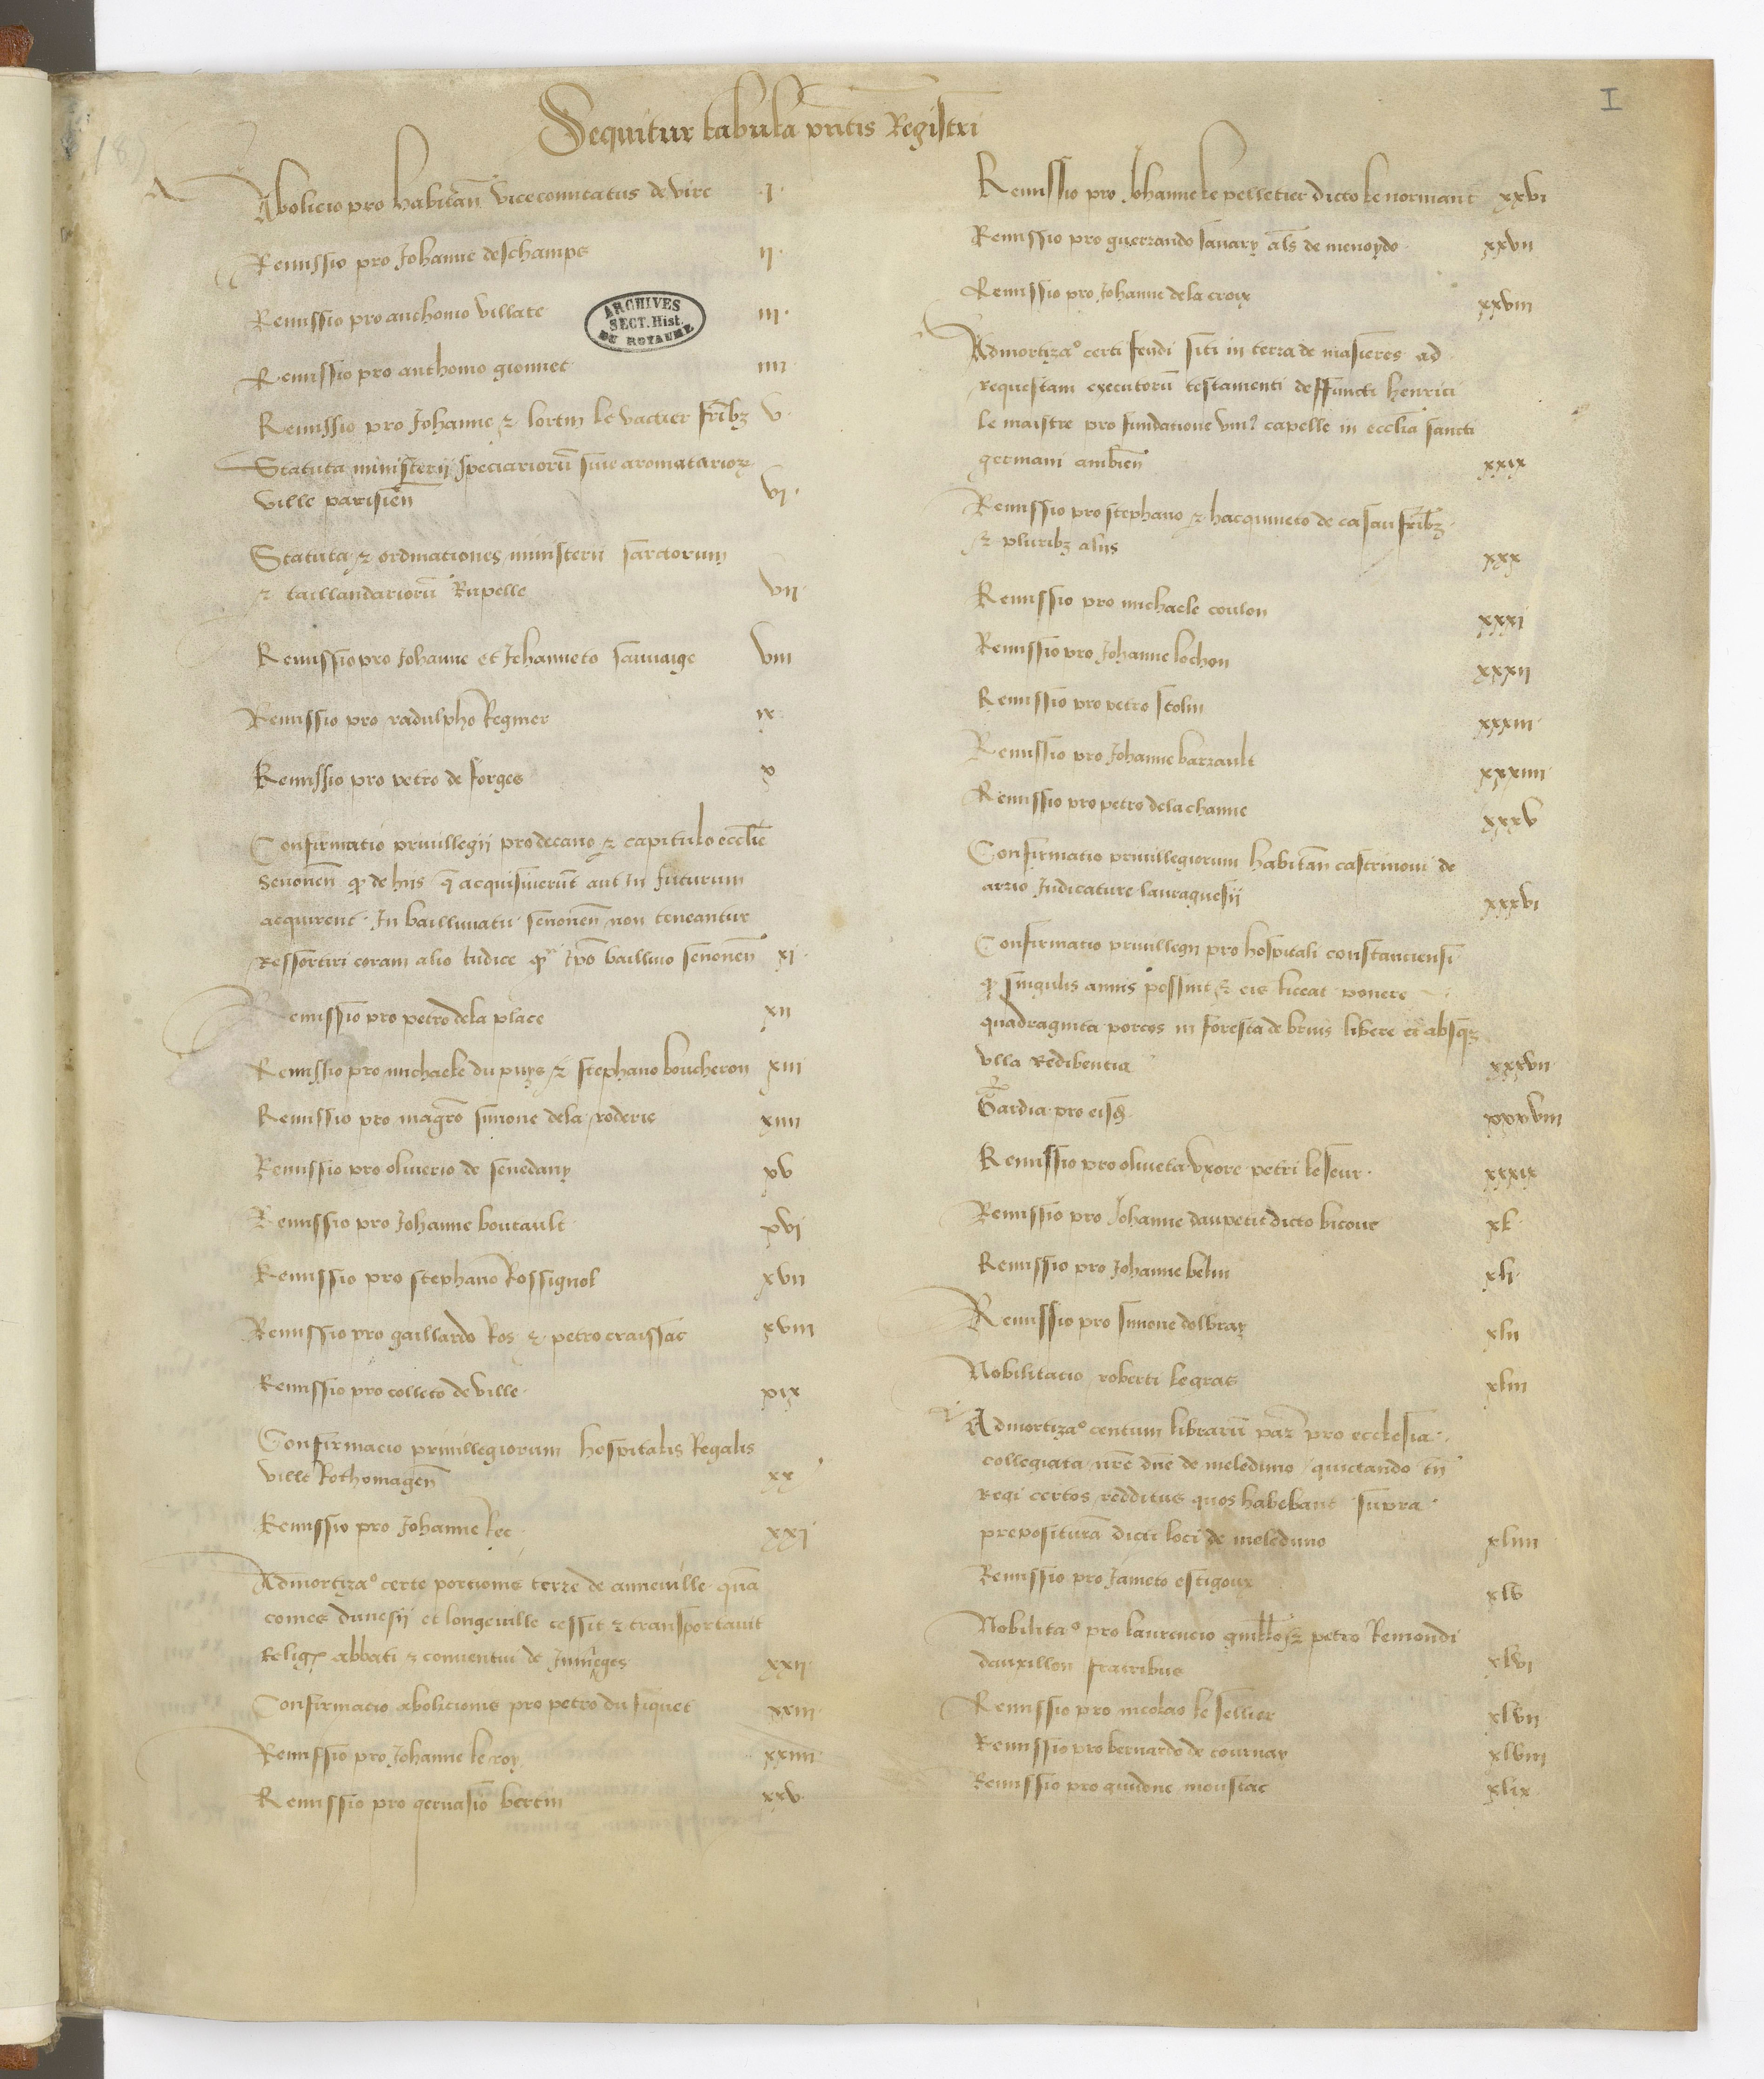 I
187
Sequitur tabula pn̄tis Registri
Abolicio pro habitan̄ vicecomitatus de vire .i.
Remissio pro Johanne deschamps ii.
Remissio pro anthonio villate iii.
ARCHIVES
SECT. Hist.
DU ROYAUME
Remissio pro anthonio gionnet iiii
Remissio pro Johanne & lortin le vactier fribꝫ v.
Statuta ministerii speciariorū sive aromatarioꝝ
ville parisien̄ vi.
Statuta & ordinationes ministerii sarctorum
& taillandariorū Rupelle vii.
Remissio pro Johanne et Johanneto sauvaige viii
Remissio pro radulpho Regnier ix
Remissio pro petro de forges x
Confirmatio privillegii pro decano & capitulo ecclie
Senonen̄ qꝫ de hiis q̄ acquisiverūt aut in futurum
acquirent. In bailliuatu senonen̄ non teneantur
Ressortiri coram alio Judice qᵃ̄ ipō baillivo senonen̄ xi.
Remissio pro petro de la place xii
Remissio pro michaele du puys & stephano boucheron xiii
Remissio pro magrō simone de la roderie xiiii
Remissio pro oliverio de senedavy xv
Remissio pro Johanne boutault xvi
Remissio pro stephano Rossignol xvii
Remissio pro gaillardo Ros & petro craissac xviii
Remissio pro colleto de ville xix
Confirmacio privillegiorum hospitalis Regalis
ville Rothomagen̄ xx
Remissio pro Johanne kee xxi
Admortizaᵒ certe portionis terre de anneville quā
comes dunesii et longeville cessit & transportavit
Religꝭ abbati & conventui de Jumieges xxii.
Confirmacio abolicionis pro petro du fiquet xxiii.
Remissio pro Johanne le roy xxiiii.
Remissio pro gervasio bertin xxv.
Remissio pro Johanne le pelletier dicto le normant xxvi
Remissio pro guerrando Januarij al̄s de menoydo xxvii
Remissio pro Johanne de la croix xxviii
Admortizaᵒ certi feudi siti in terra de masieres ad
requestam executorū testamenti deffuncti henrici
le maistre pro fundatione vniꝰ capelle in ecclīa sancti
germani ambien̄ xxix
Remissio pro stephano & hacquineto de casau fribꝫ
& pluribꝫ aliis xxx
Remissio pro michaele coulon xxxi
Remissio pro Johanne lochon xxxii
Remissio pro petro stolin xxxiii.
Remissio pro Johanne barrault xxxiiii
Remissio pro petro de la chanie xxxv
Confirmatio privillegiorum habitan̄ castrinovi de
arrio Judicature lauraguesii xxxvi
Confirmatio privillegii pro hospitali constanciensi
qꝫ singulis annis possint & eis liceat ponere
quadraginta porcos in foresta de bruis libere et absqꝫ
vlla Redibentia xxxvii
Gardia pro eisdꝫ xxxviii
Remissio pro oliveta vxore petri le seur. xxxix
Remissio pro Johanne daupetit dicto bicone xl
Remissio pro Johanne belin xli
Remissio pro simone dolbray xlii
Nobilitacio roberti le gras xliii
Admortizaᵒ centum librarū par̄ pro ecclesia
collegiata nr̄e dn̄e de meleduno quictando tn̄
Regi certos redditus quos habebant supra
preposituram dicti loci de meleduno xliiii
Remissio pro Jameto estigoux xlv
Nobilitaᵒ pro laurencio guillō & petro Remondi
dauxillon fratribus xlvi
Remissio pro nicolao le sellier xlvii
Remissio pro bernardo de cournay xlviii
Remissio pro guidone moustac xlix